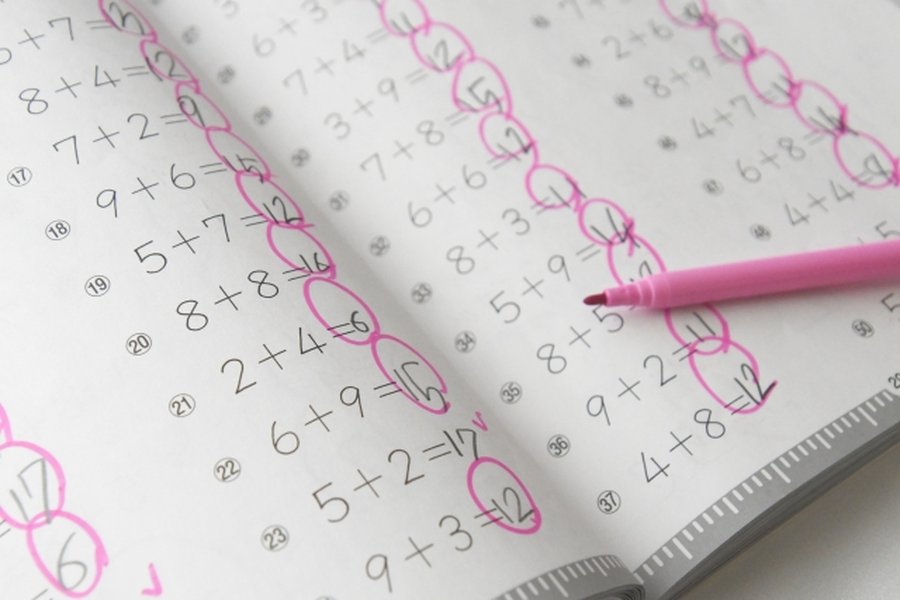 8+4=12
⑰ 7+2=9
⑱ 9+6=15
⑲ 5+7=12
⑳ 8+8=16
㉑ 2+4=6
㉒ 6+9=15
㉓ 5+2=17
9+3=12
=17
=6
6+3
㉙ 7+4=11
㉚ 3+9=12
㉛ 7+8=15
㉜ 6+6=12
㉝ 8+3=11
㉞ 5+9=14
㉟ 8+5
㊱ 9+2=11
㊲ 4+8=12
7+
㊹ 2+6=8
㊺ 8+9=17
㊻ 4+7=11
㊼ 6+8=14
㊽ 4+4=
㊿ 5